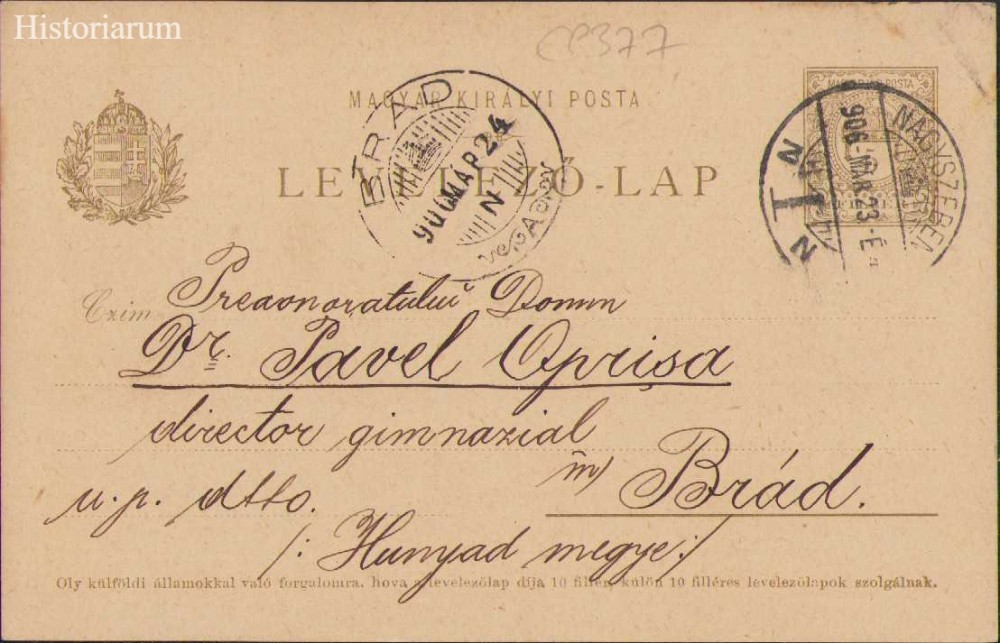 Historiarum
CP377
MAGYAR KIRÁLYI POSTA
MAGYAR KIR. POSTA
BRÁD
900 MÁR 24
N
NAGYSZEBEN
906 MÁR 23 É
LEVELEZŐ-LAP
Czim
Preaonoratului Domn
Dr. Pavel Oprişa
director gimnazial
în) Brád.
u. p. dtto.
/: Hunyad megye :/
Oly külföldi államokkal való forgalomra, hova a levelezőlap díja 10 fillér, külön 10 filléres levelezőlapok szolgálnak.